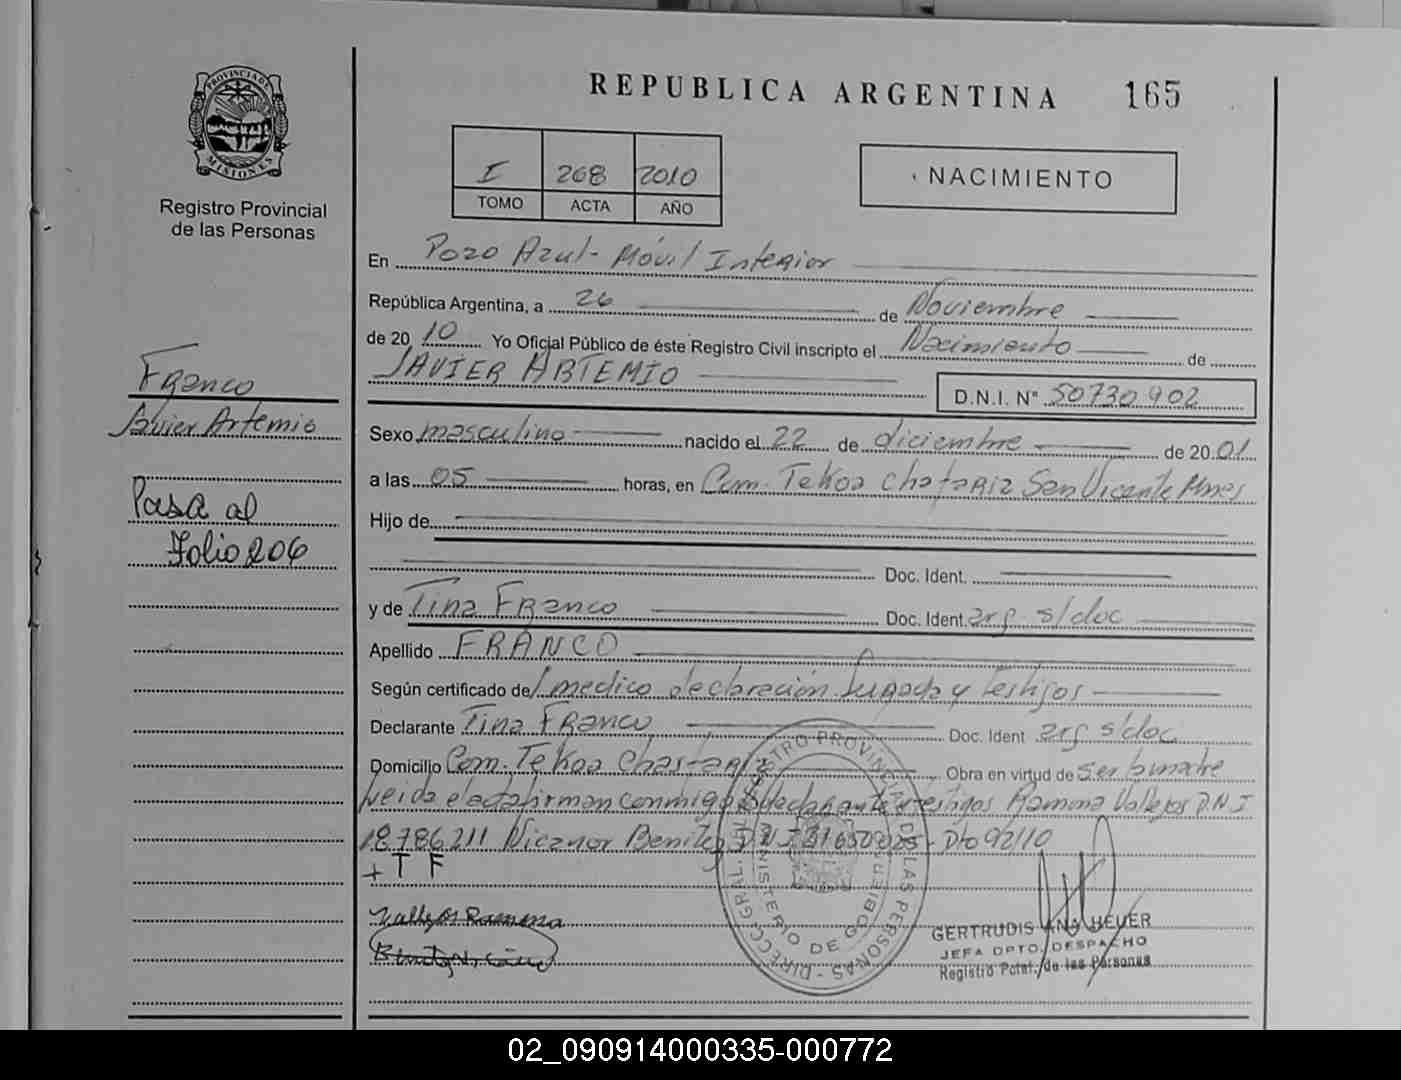 REPUBLICA ARGENTINA 165
PROVINCIA DE
MISIONES
Registro Provincial
de las Personas
I 268 2010
TOMO ACTA AÑO
NACIMIENTO
En Pozo Azul - Móvil Interior
República Argentina, a 26 de Noviembre
de 20 10 Yo Oficial Público de éste Registro Civil inscripto el Nacimiento de
JAVIER ARTEMIO
D.N.I. N° 50730902
Franco
Javier Artemio
Pasa al
Folio 206
Sexo masculino nacido el 22 de diciembre de 20 01
a las 05 horas, en Com. Tekoa Chatariz San Vicente Mnes
Hijo de
Doc. Ident.
y de Tina Franco Doc. Ident. arg s/doc
Apellido FRANCO
Según certificado de / medico declaración Jurada y testigos
Declarante Tina Franco Doc. Ident arg s/doc
Domicilio Com. Tekoa Chatariz Obra en virtud de ser la madre
leida el acta firman conmigo declarante y testigos Ramona Vallejos DNI
18.786211 Nicanor Benitez DNI Dto 92/10
+ T F
Vallejos Ramona
REGISTRO PROVINCIAL DE LAS PERSONAS - DIRECC. GRAL.
MINISTERIO DE GOBIERNO
GERTRUDIS ANA HEUER
JEFA DPTO. DESPACHO
Registro Pcial. de las Personas
02_090914000335-000772